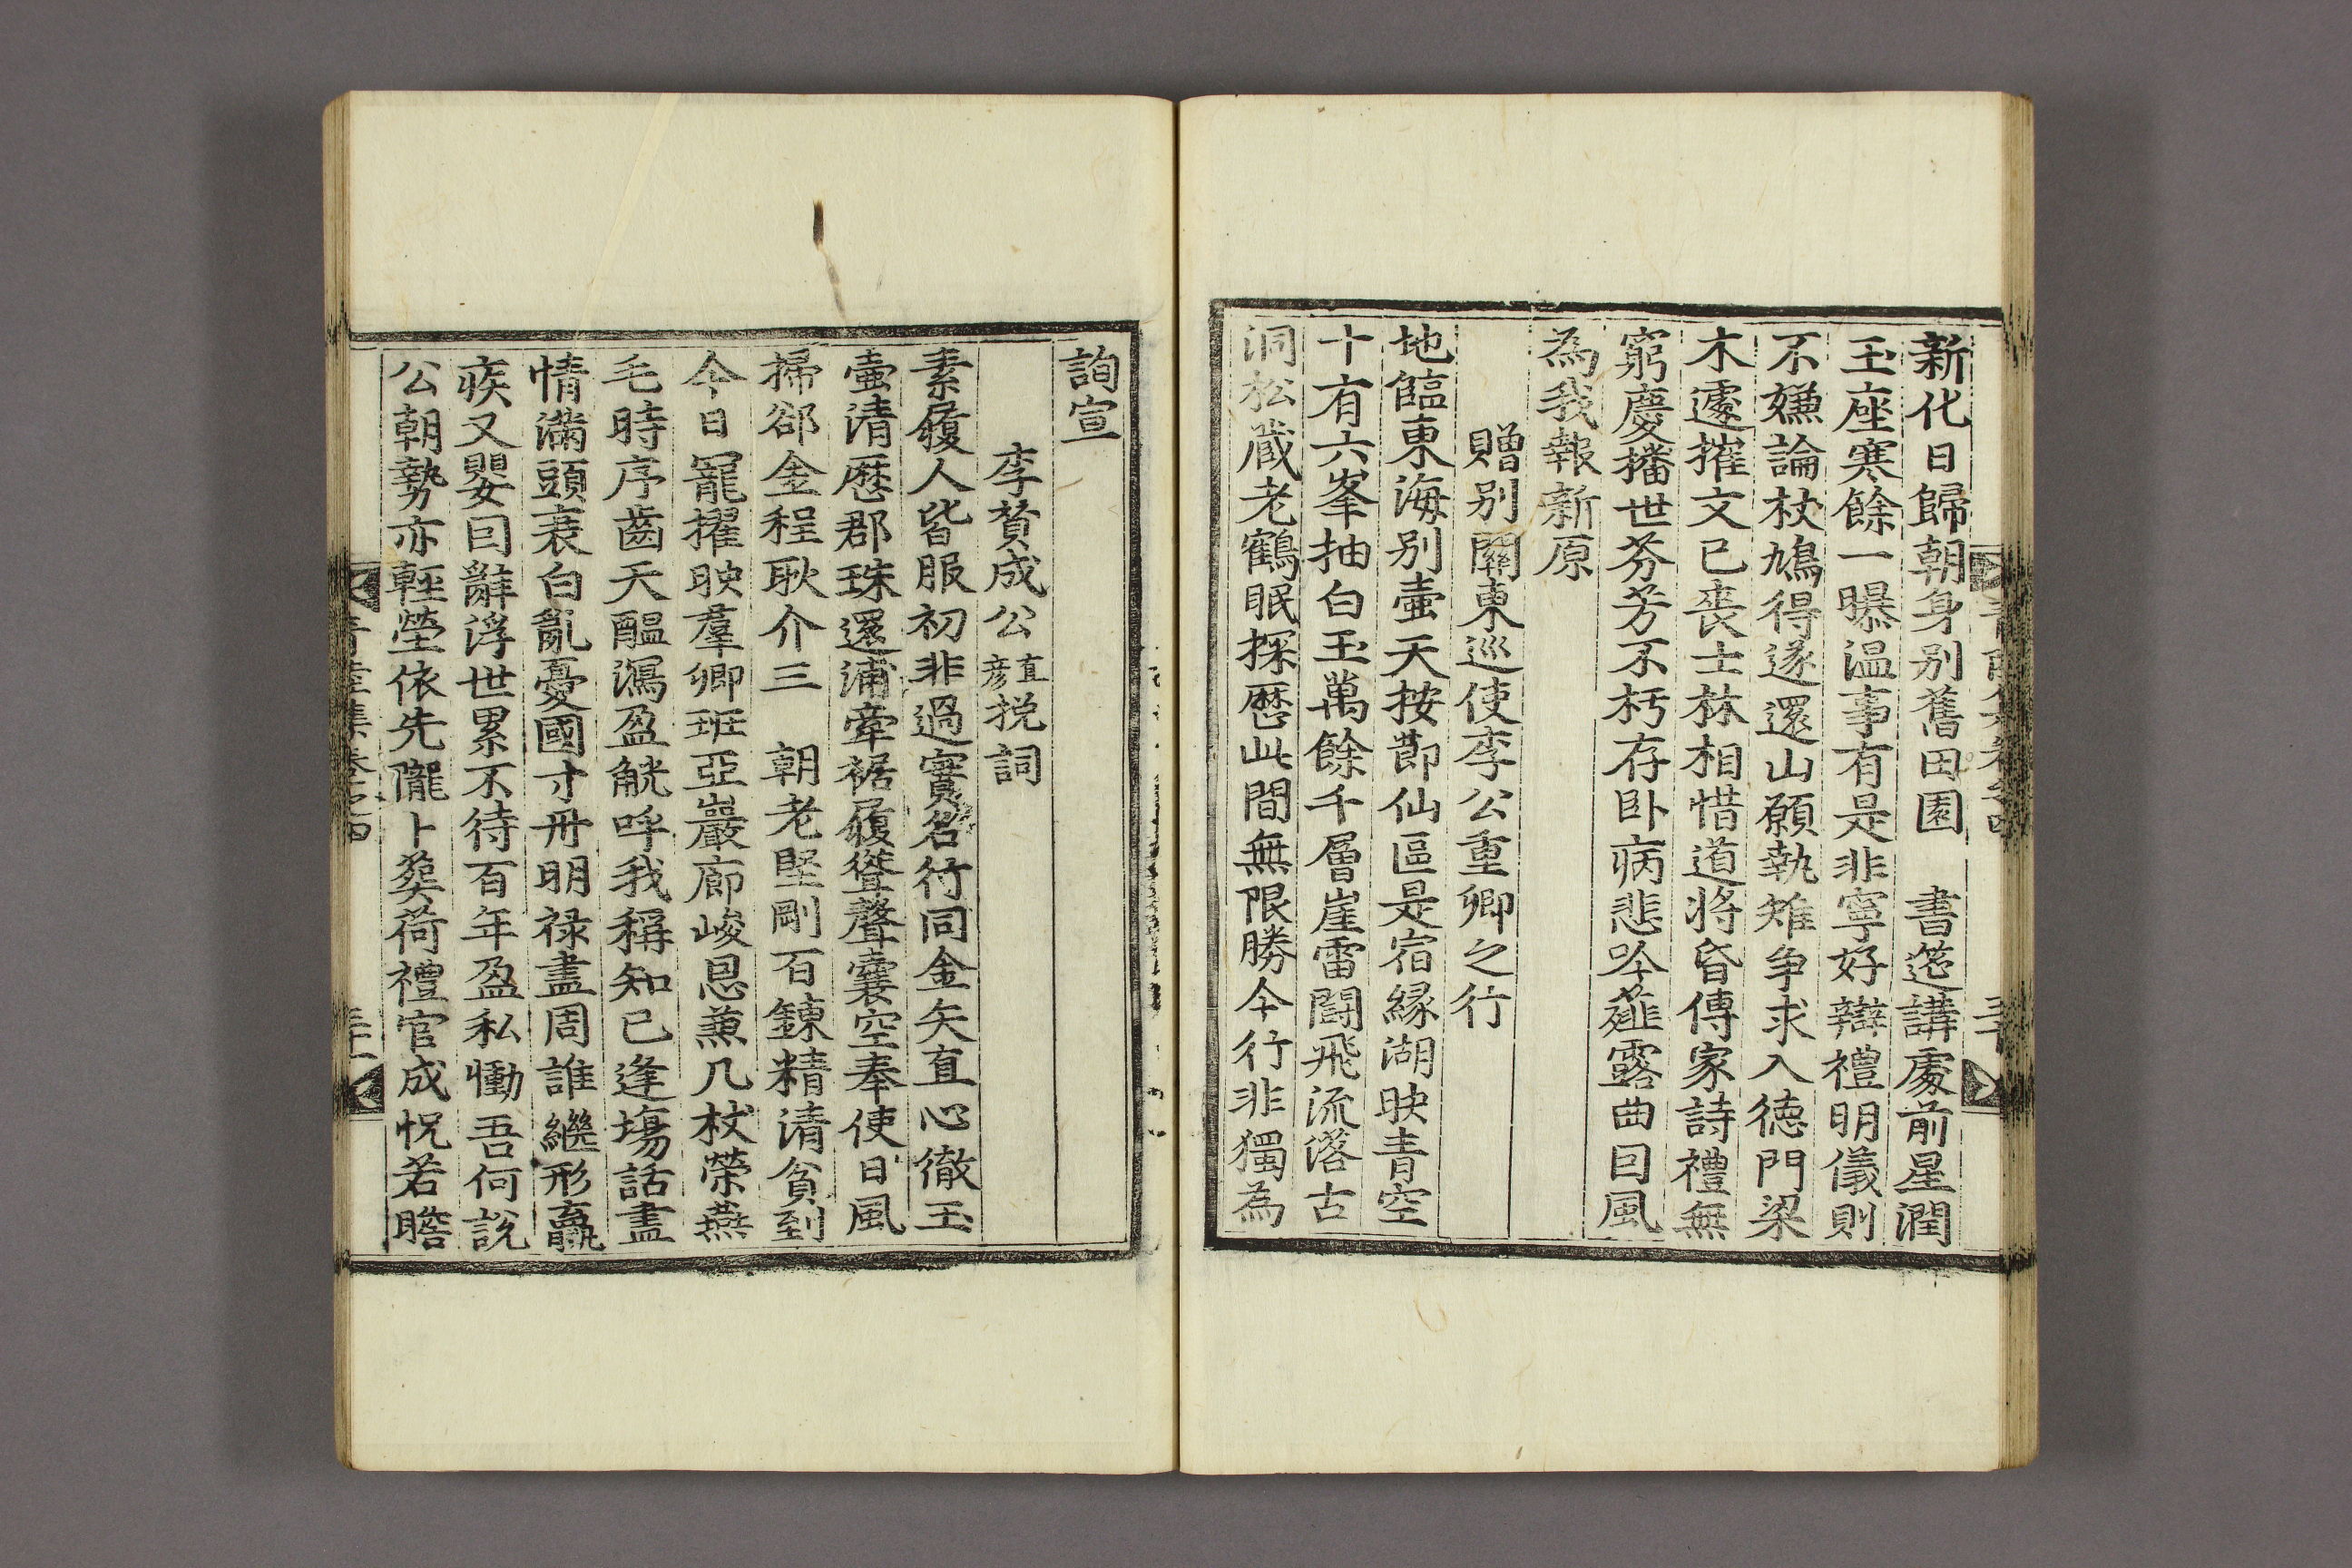 新化日歸朝身别舊田園　書筵講處前星潤
玉座寒餘一曝温事有是非寧好辯禮明儀則
不嫌論杖鳩得遂還山願執雉争求入德門梁
木遽摧文已喪士林相惜道將昏傳家詩禮無
窮慶播世芬芳不朽存卧病悲吟薤露曲囙風
為我報新原
贈别關東巡使李公重卿之行
地臨東海别壷天按莭仙區是宿緣湖映青空
十有六峯抽白玉萬餘千層崖雷闘飛流落古
洞松蔵老鶴眠探歷此間無限勝今行非獨為
詢宣
李贊成公直彥挽詞
素履人皆服初非過實名行同金矢直心徹玉
壷清歷郡珠還浦牽裾履聳聲囊空奉使日風
掃郤金程耿介三　朝老堅剛百鍊精清貧到
今日寵擢映羣卿班亞巖廊峻恩兼几杖榮燕
毛時序齒天醖瀉盈觥呼我稱知已逢塲話盡
情滿頭衰白亂憂國寸丹明禄盡周誰繼形羸
疾又嬰囙辭浮世累不待百年盈私慟吾何說
公朝勢亦輕塋依先隴卜葬荷禮官成怳若瞻